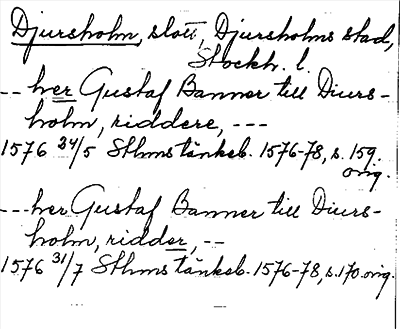 Djursholm, slott, Djursholms stad,
Stockh. l.
-- her Gustaf Banner till Diurs-
holm, riddere, ---
1576 24/5 Sthms tänkeb. 1576-78, s. 159.
orig.
--- her Gustaf Banner till Diurs-
holm, ridder, --
1576 31/7 Sthms tänkeb. 1576-78, s. 170 orig.